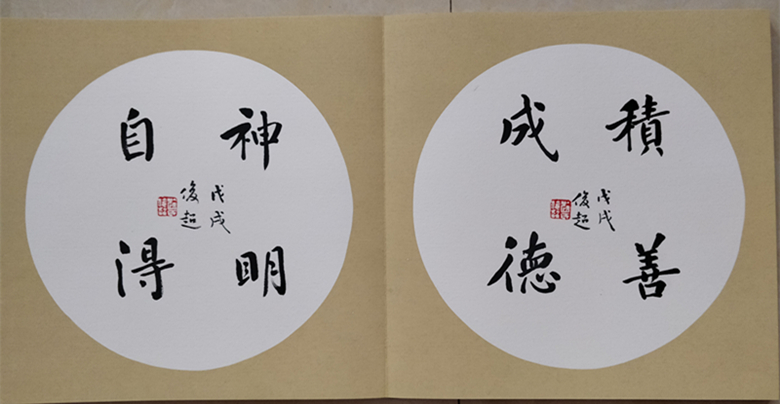 積善
成德
戊戌
俊超
神明
自得
戊戌
俊超